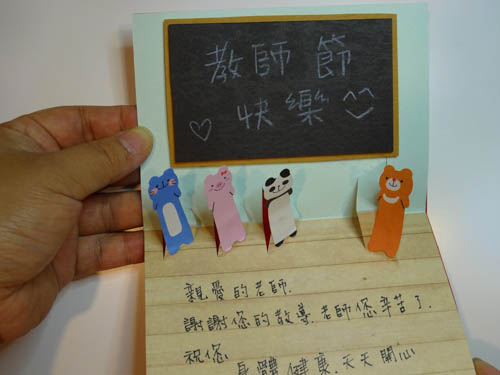 教師節
快樂
親愛的老師.
謝謝您的教導.老師您辛苦了.
祝您
身體健康.天天開心